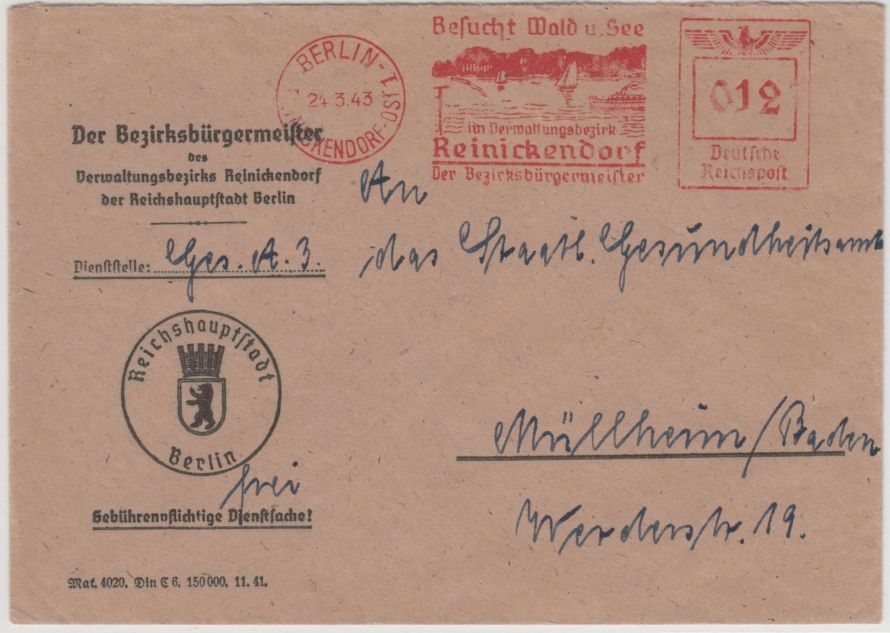 Besucht Wald u. See
BERLIN-
24.3.43
CKENDORF-OST 1
012
im Verwaltungsbezirk
Reinickendorf
Der Bezirksbürgermeister
Deutsche
Reichspost
Der Bezirksbürgermeister
des
Verwaltungsbezirks Reinickendorf
der Reichshauptstadt Berlin
Dienststelle: Ges. A. 3.
An
das Staatl. Gesundheitsamt
Reichshauptstadt
Berlin
Müllheim/Baden
Werderstr. 19.
frei
Gebührenpflichtige Dienstsache!
Mat. 4020. Din C 6. 150 000. 11. 41.